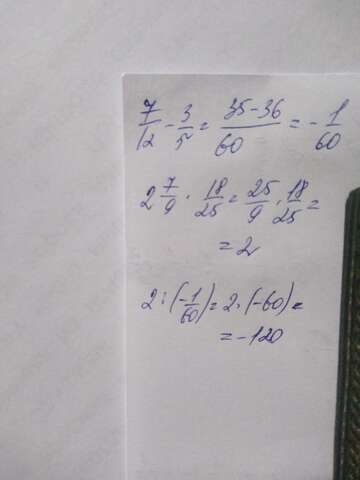 7/12 - 3/5 = (35-36)/60 = -1/60
2 7/9 · 18/25 = 25/9 · 18/25 =
= 2
2 : (-1/60) = 2 · (-60) =
= -120